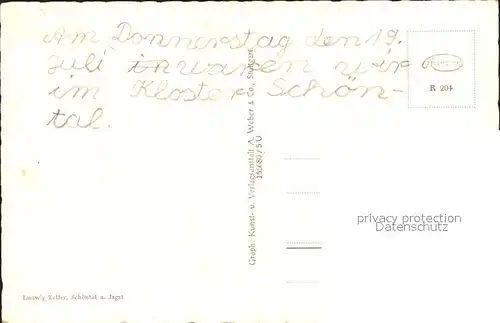 Am Donnerstag den 19.
Juli waren wir
im Kloster Schön-
tal.
R 204
Graph. Kunst- u. Verlagsanstalt A. Weber & Co., Stuttgart
privacy protection
Datenschutz
Schöntal a. Jagst